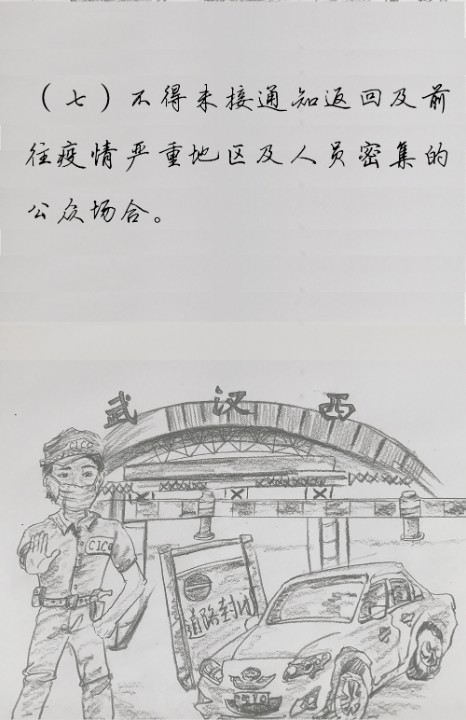 （七）不得未接通知返回及前
往疫情严重地区及人员密集的
公众场合。
武汉西
CICC
道路封闭